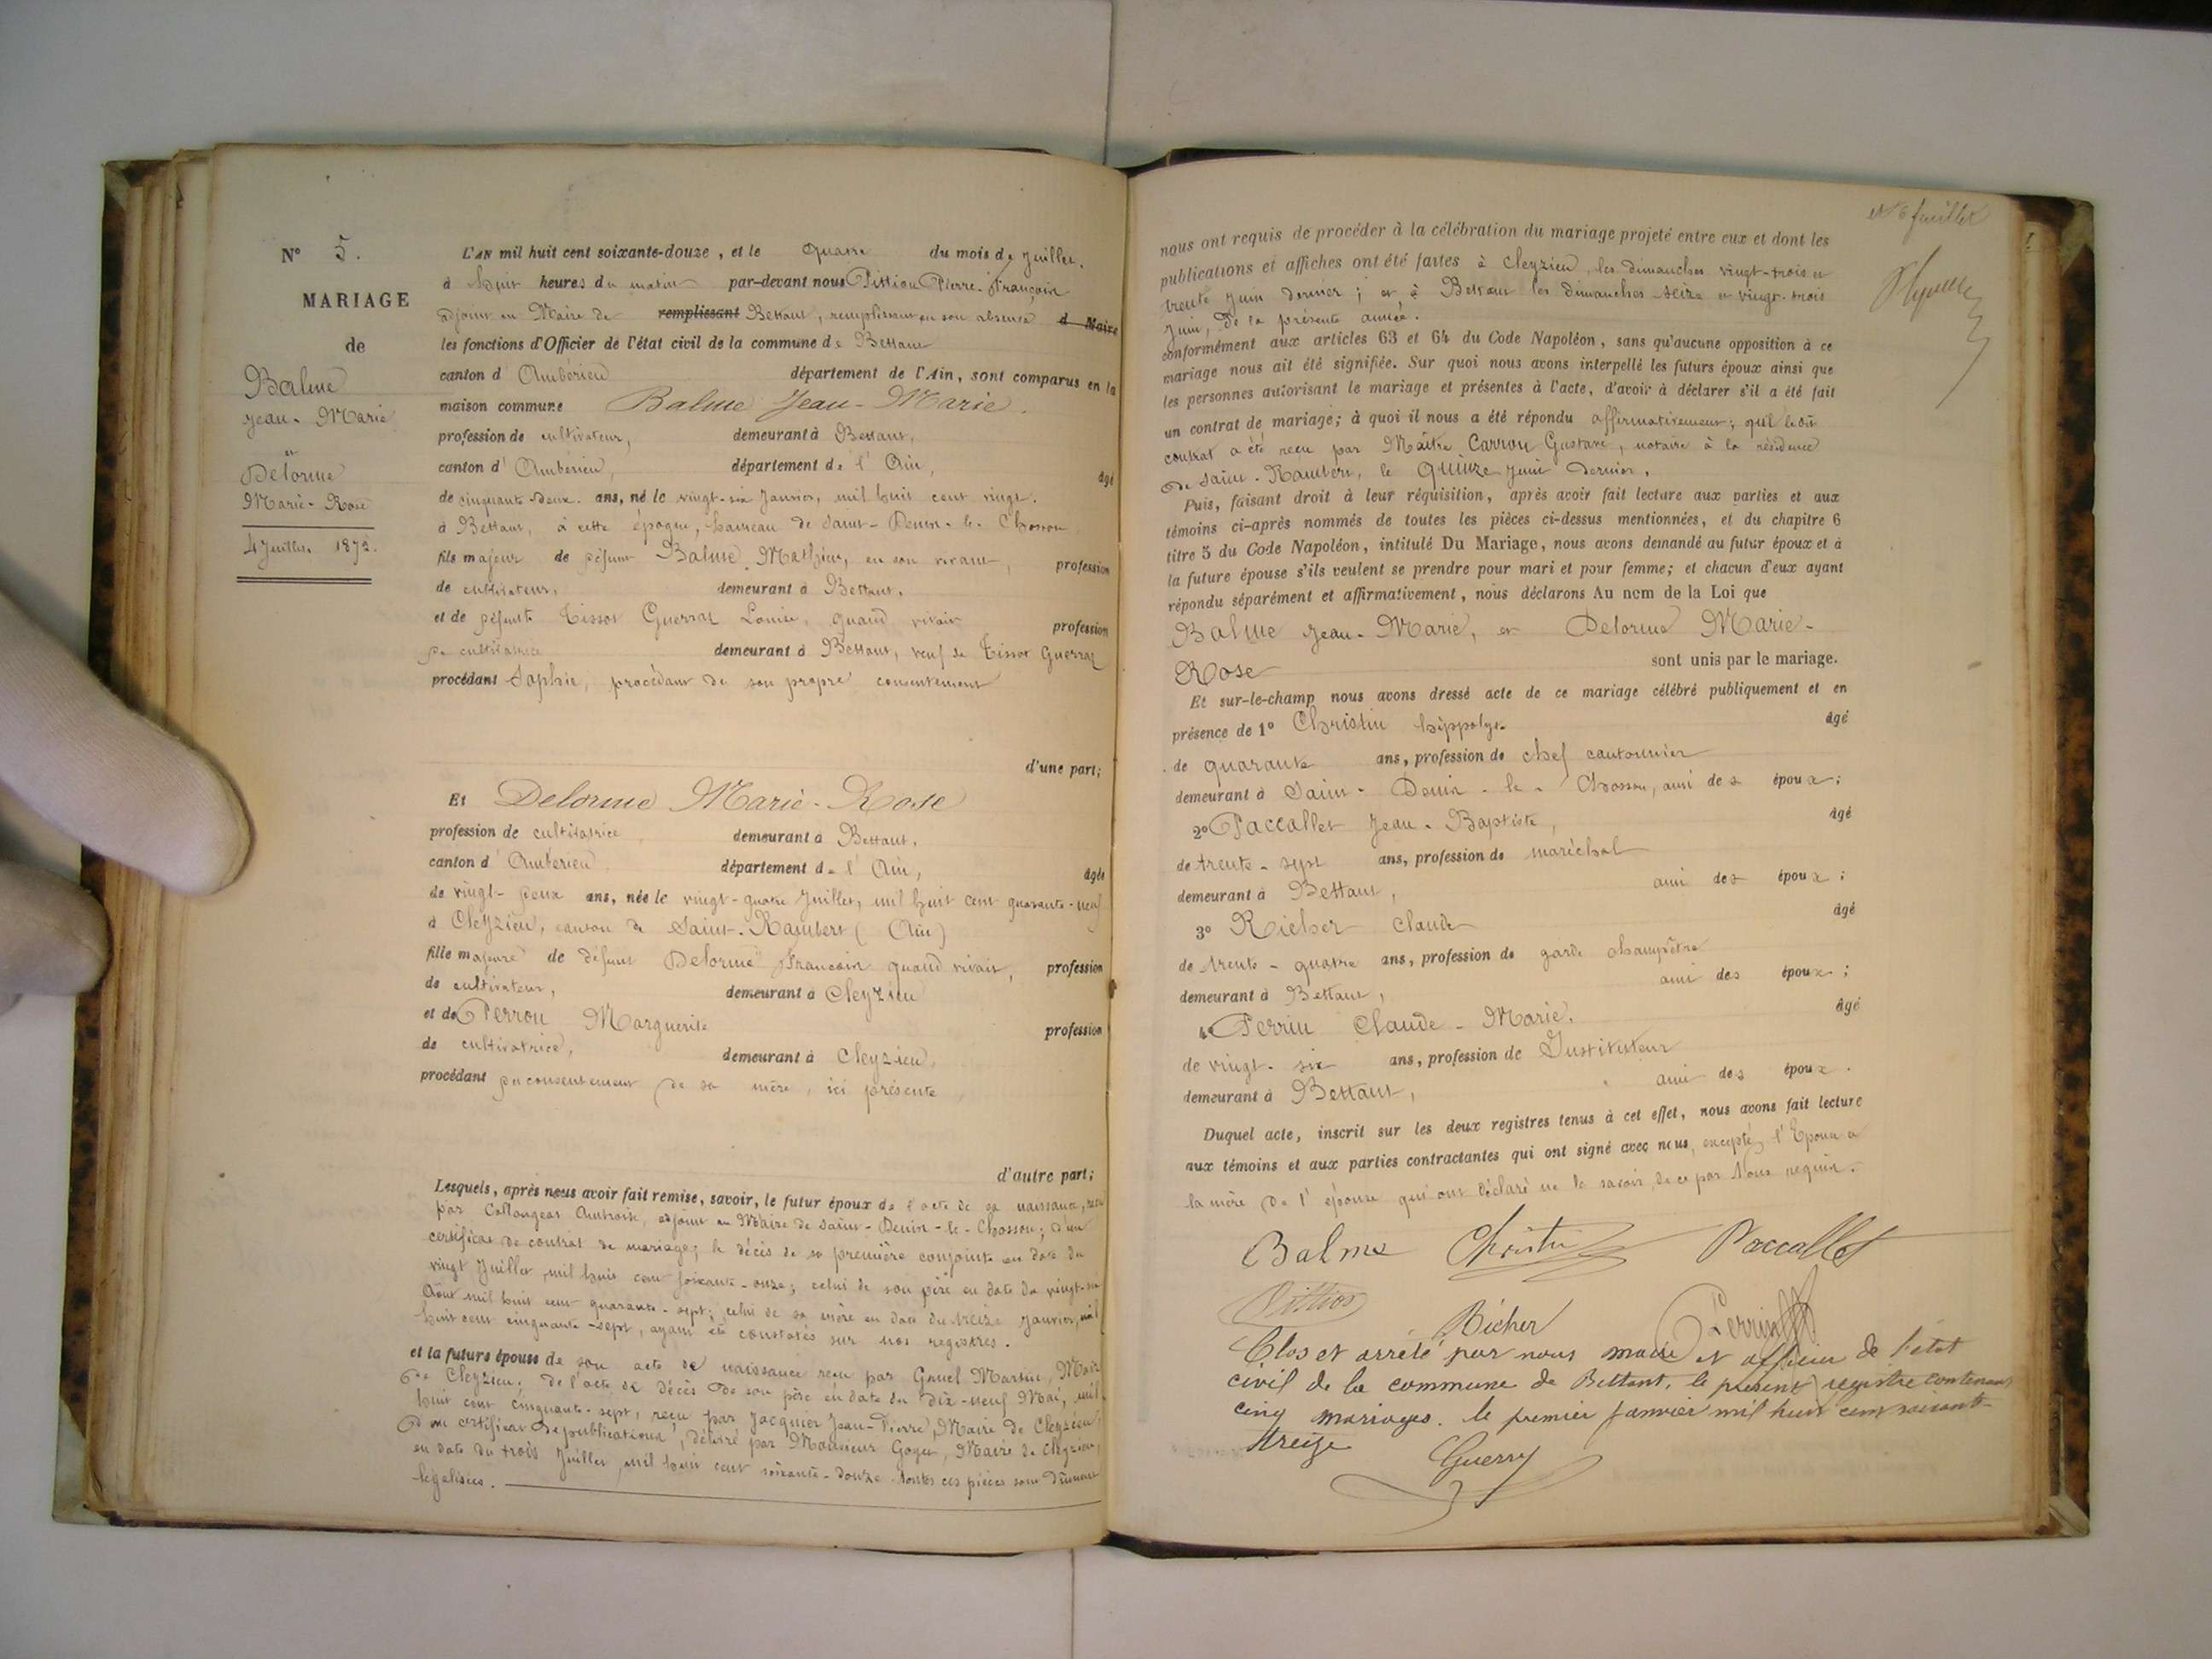 N° 5.
MARIAGE
de
Balme
Jean-Marie
et
Delorme
Marie-Rose
4 Juillet 1872.
L'AN mil huit cent soixante-douze, et le quatre du mois de Juillet.
à huit heures du matin par-devant nous Pittion Pierre-François
adjoint au Maire de remplissant Bettant, remplissant en son absence d Maire
les fonctions d'Officier de l'état civil de la commune de Bettant
canton d'Ambérieu département de l'Ain, sont comparus en la
maison commune Balme Jean-Marie.
profession de cultivateur, demeurant à Bettant,
canton d'Ambérieu, département de l'Ain, âgé
de cinquante-deux ans, né le vingt-six Janvier, mil huit cent vingt.
à Bettant, à cette époque, hameau de Saint-Denis-le-Chosson
fils majeur de défunt Balme Mathieu, en son vivant, profession
de cultivateur, demeurant à Bettant.
et de défunte Tissot Guerraz Louise, quand vivait profession
de cultivatrice demeurant à Bettant, veuf de Tissot Guerraz
procédant Sophie, procédant de son propre consentement
d'une part;
Et Delorme Marie-Rose
profession de cultivatrice demeurant à Bettant,
canton d'Ambérieu département de l'Ain, âgée
de vingt-deux ans, née le vingt-quatre Juillet, mil huit cent quarante-neuf
à Cleyzieu, canton de Saint-Rambert (Ain)
fille majeure de défunt Delorme François quand vivait, profession
de cultivateur, demeurant à Cleyzieu
et de Perron Marguerite profession
de cultivatrice, demeurant à Cleyzieu,
procédant du consentement de sa mère, ici présente,
d'autre part;
Lesquels, après nous avoir fait remise, savoir, le futur époux de l'acte de sa naissance, reçu
par Collongeat adjoint au Maire de Saint-Denis-le-Chosson; d'un
certificat de contrat de mariage; le décès de sa première conjointe en date du
vingt Juillet mil huit cent soixante-onze; celui de son père en date du vingt-six
Août mil huit cent quarante-sept; celui de sa mère en date du treize Janvier, mil
huit cent cinquante-sept, ayant été constatés sur nos registres.
et la future épouse de son acte de naissance reçu par Gruel Martin, Maire
de Cleyzieu; de l'acte de décès de son père en date du dix-neuf Mai, mil
huit cent cinquante-sept, reçu par Jacquier Jean-Pierre, Maire de Cleyzieu;
d'un certificat de publications, délivré par Monsieur Goyet, Maire de Cleyzieu,
en date du trois Juillet, mil huit cent soixante-douze toutes ces pièces sont dûment
légalisées.
feuillet
nous ont requis de procéder à la célébration du mariage projeté entre eux et dont les
publications et affiches ont été faites à Cleyzieu, les dimanches vingt-trois et
trente Juin dernier; et à Bettant les dimanches seize et vingt-trois
Juin, de la présente année.
conformément aux articles 63 et 64 du Code Napoléon, sans qu'aucune opposition à ce
mariage nous ait été signifiée. Sur quoi nous avons interpellé les futurs époux ainsi que
les personnes autorisant le mariage et présentes à l'acte, d'avoir à déclarer s'il a été fait
un contrat de mariage; à quoi il nous a été répondu affirmativement; que ledit
contrat a été reçu par Maître Carron Gustave, notaire à la résidence
de Saint-Rambert, le quinze Juin dernier.
Puis, faisant droit à leur réquisition, après avoir fait lecture aux parties et aux
témoins ci-après nommés de toutes les pièces ci-dessus mentionnées, et du chapitre 6
titre 5 du Code Napoléon, intitulé Du Mariage, nous avons demandé au futur époux et à
la future épouse s'ils veulent se prendre pour mari et pour femme; et chacun d'eux ayant
répondu séparément et affirmativement, nous déclarons Au nom de la Loi que
Balme Jean-Marie, et Delorme Marie-
Rose sont unis par le mariage.
Et sur-le-champ nous avons dressé acte de ce mariage célébré publiquement et en
présence de 1° Christin hippolyte âgé
de quarante ans, profession de chef cantonnier
demeurant à Saint-Denis-le-Chosson, ami des époux;
2° Paccallet Jean-Baptiste, âgé
de trente-sept ans, profession de maréchal
demeurant à Bettant, ami des époux;
3° Richer Claude âgé
de trente-quatre ans, profession de garde champêtre
demeurant à Bettant, ami des époux;
4° Perrin Claude-Marie. âgé
de vingt-six ans, profession de Instituteur
demeurant à Bettant, ami des époux.
Duquel acte, inscrit sur les deux registres tenus à cet effet, nous avons fait lecture
aux témoins et aux parties contractantes qui ont signé avec nous, excepté, l'Epouse et
la mère de l'épouse qui ont déclaré ne le savoir, de ce par Nous requis.
Balme Christin Paccallet
Pittion Richer Perrin
Clos et arrêté par nous maire et officier de l'état
civil de la commune de Bettant, le présent registre contenant
cinq mariages. le premier janvier mil huit cent soixante-
treize
Guerry